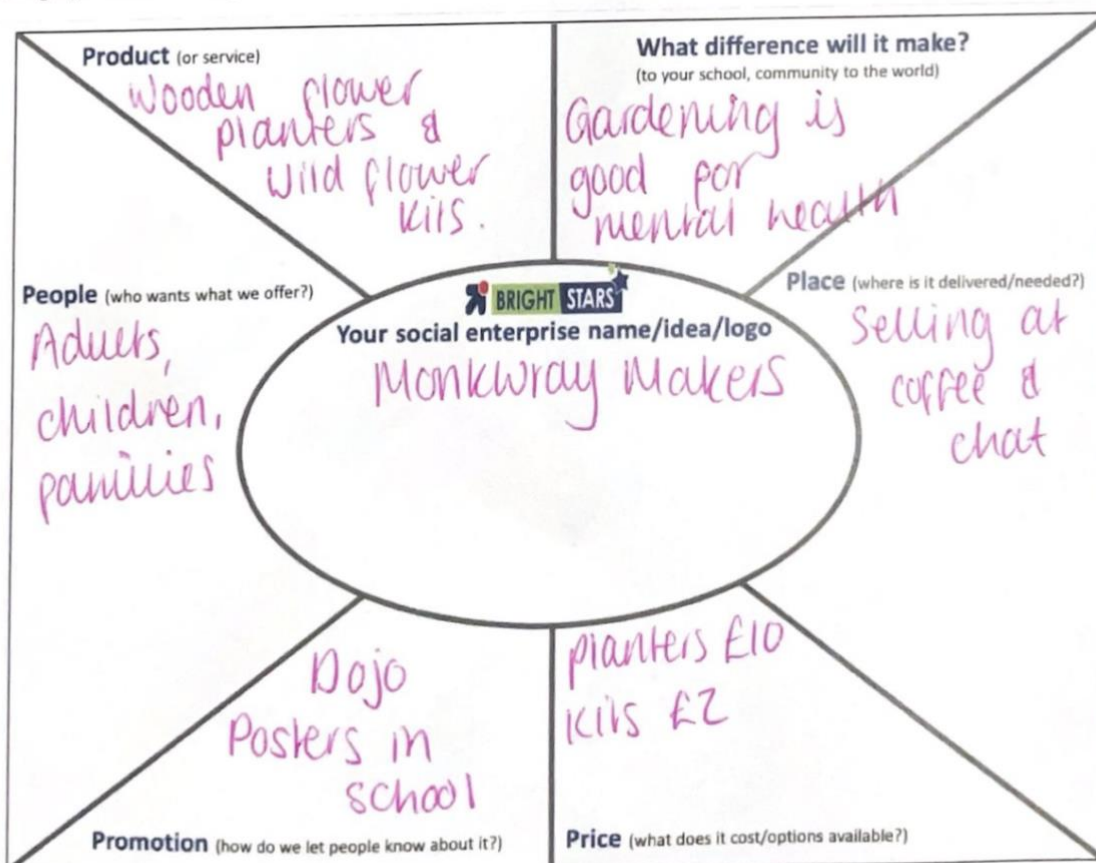 Product (or service)
Wooden flower
planters &
wild flower
kits.
What difference will it make?
(to your school, community to the world)
Gardening is
good for
mental health
People (who wants what we offer?)
Adults,
children,
families
BRIGHT STARS
Your social enterprise name/idea/logo
Monkwray Makers
Place (where is it delivered/needed?)
Selling at
coffee &
chat
Dojo
Posters in
school
Promotion (how do we let people know about it?)
planters £10
kits £2
Price (what does it cost/options available?)